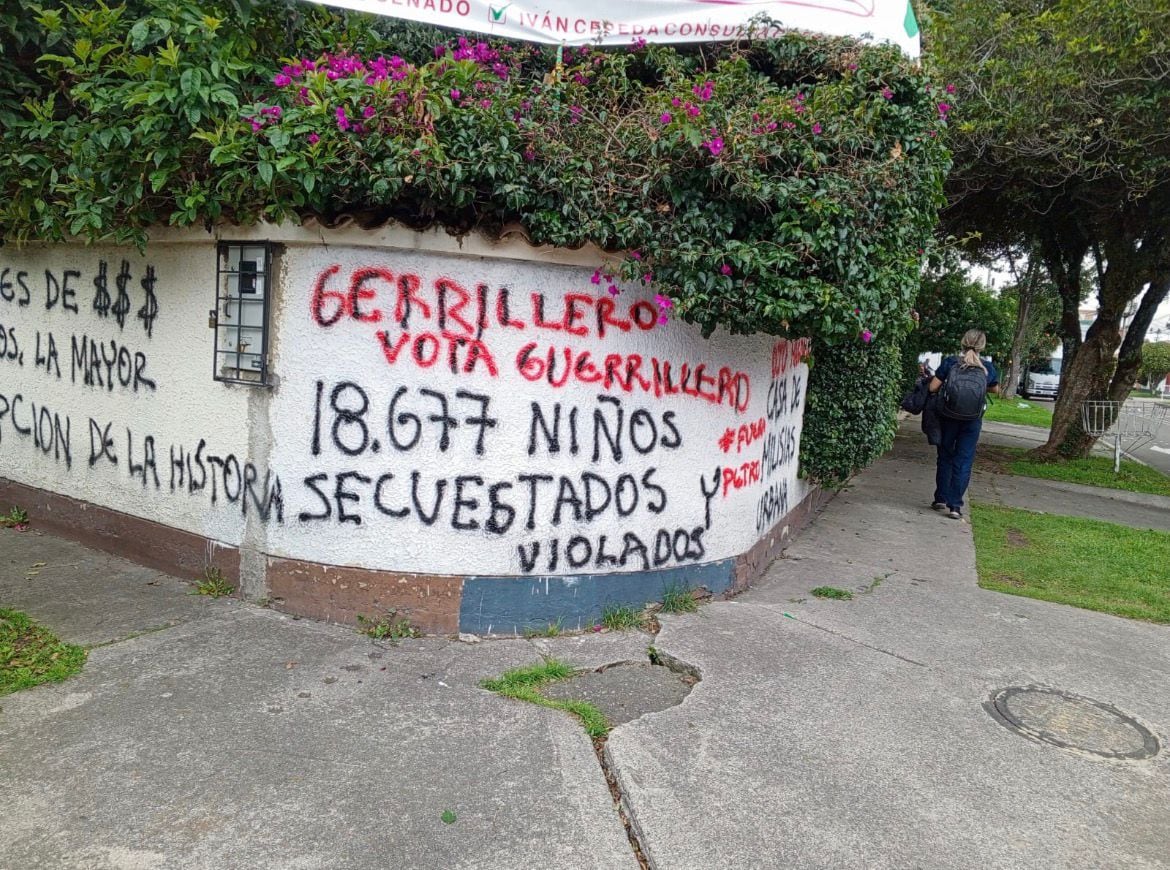 SENADO IVÁN CEPEDA CONSUL
ES DE $$$
OS, LA MAYOR
PCION DE LA HISTORIA
GERRILLERO
VOTA GUERRILLERO
18.677 NIÑOS
SECUESTADOS Y
VIOLADOS
#FUERA
PETRO
CASA DE
MILISIAS
URBANA